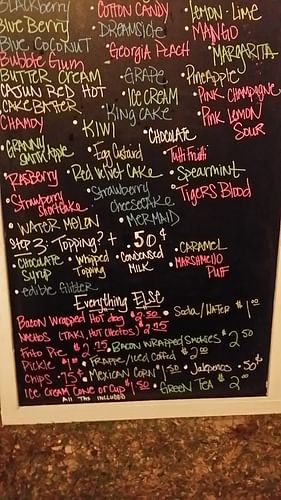 BLACKBERRY • COTTON CANDY • LEMON-LIME
Blue Berry DREAMSICLE • MANGO
Blue Coconut • Georgia Peach • MARGARITA
Bubble Gum
Butter Cream • GRAPE • Pineapple
CAJUN RED HOT • ICE CREAM • PINK CHAMPAGNE
CAKE BATTER • King Cake • PINK LEMON
CHAMOY • KIWI • CHOCOLATE SOUR
• GRANNY SMITH APPLE • Egg Custard • Tutti Frutti
• RASBERRY • Red Velvet CAKE • Spearmint
• Strawberry Shortcake • Strawberry CHEESECAKE • TIGERS Blood
• WATER MELON • MERMAID
STEP 3: TOPPING? + .50¢
• CHOCOLATE Syrup • Whipped Topping • CONDENSED MILK • CARAMEL
• MARSHMELLO PUFF
• edible Glitter
Everything ELSE
Bacon Wrapped Hot dog $2.50 • Soda/Water $1.00
NACHOS (TAKI, HOT CHEETOS) $2.95
Frito Pie $2.95 • Bacon Wrapped Smokies $2.50
Pickle $1.00 • FRAPPE/Iced Coffee $2.00
Chips .75¢ • Mexican Corn $1.50 • Jalepenos .50¢
ICE CREAM CONE or CUP $1.50 • GREEN TEA $2.00
ALL TAX INCLUDED